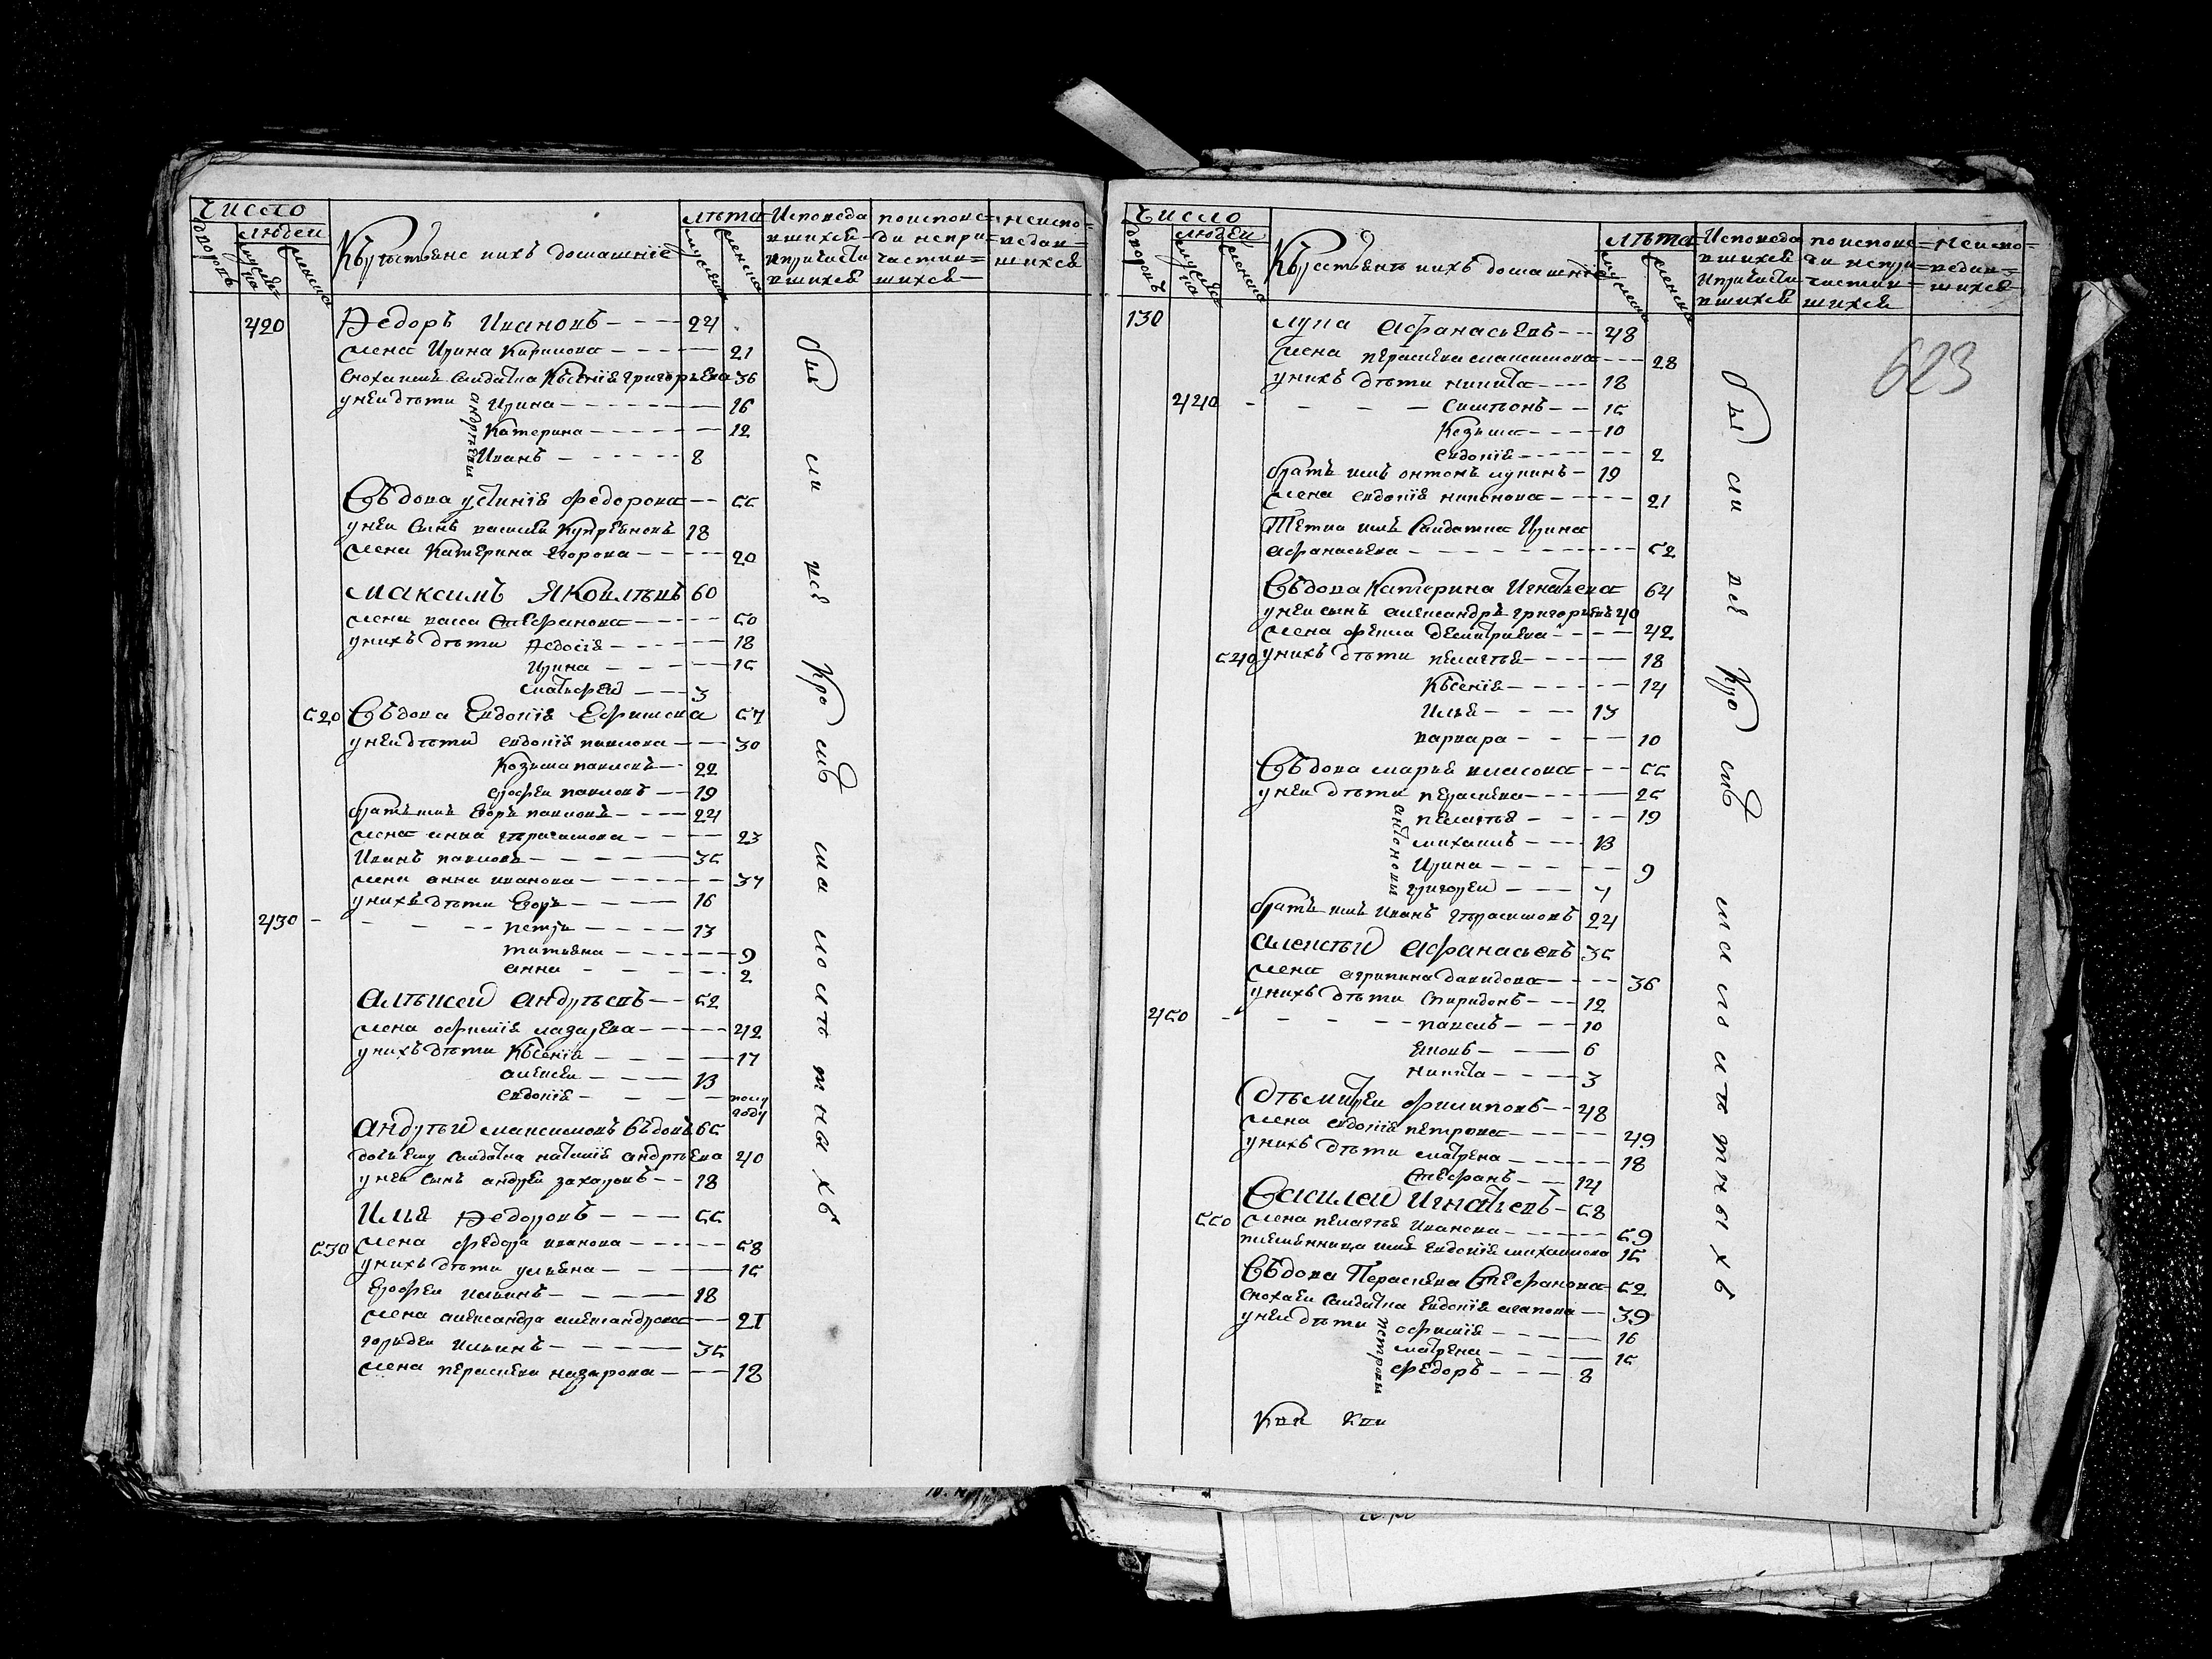 Число
людеи
дворовъ
мужеска
женска
Крестьяне и ихъ домашніе
лѣта
мужеска
женска
Исповеда
вшихся
и причасти
вшихся
по испове=
ди непри=
частив=
шихся
неиспо=
ведав=
шихся
420 Ѳедоръ Ивановъ 24
жена Ирина Кирилова 21
сноха имъ салдатка Ксенія григорьева 36
у неи дѣти Ирина 16
андреевы
Катерина 12
Иванъ 8
Вдова устинія федорова 55
у неи сынъ василеи Купреяновъ 18
жена Катерина Егорова 20
максимъ Яковлѣвъ 60
жена васса стефанова 50
у нихъ дѣти Ѳедосія 18
Ирина 15
матьфеи 3
520 Вдова Евдокія Ефимова 57
у неи дѣти евдокія павлова 30
Козьма павловъ 22
ерофеи павловъ 19
братъ имъ Егоръ павловъ 24
жена анна герасимова 23
Иванъ павловъ 35
жена анна иванова 37
у нихъ дѣти Егоръ 16
430 петръ 13
татьяна 9
анна 2
алѣксеи андрѣевъ 52
жена офимія лазарева 42
у нихъ дѣти Ксенія 17
алексеи 13
евдокія полу
году
андрѣи максимовъ вдовъ 65
дочь ему салдатка наталія андрѣева 40
у нея сынъ андреи захаровъ 18
Илья Ѳедоровъ 55
530 жена федора иванова 58
у нихъ дѣти ульяна 15
Ерофеи ильинъ 18
жена александра александрова 21
гордеи ильинъ 35
жена парасковя назарова 18
бы ли всѣ кромѣ малолѣтныхъ
Число
людеи
дворовъ
мужеска
женска
Крестьянѣ и ихъ домашніе
лѣта
мужеска
женска
Исповеда
вшихся
и причасти
вшихся
по испове=
ди непри=
частив=
шихся
неиспо=
ведав=
шихся
623
130 лупа афанасьевъ 48
жена перасковя максимова 28
у нихъ дѣти никита 18
440 симѣонъ 15
Козьма 10
евдокія 2
братъ имъ антонъ лупинъ 19
жена евдокія никонова 21
Тетка имъ салдатка Ирина
афанасьева 52
Вдова Катерина Игнатьева 64
у неи сынъ александръ григорьевъ 40
жена фекла демитриева 42
540 у нихъ дѣти пелагѣя 18
Ксенія 14
Илья 13
варвара 10
Вдова марья власова 55
у неи дѣти перасковя 25
антоновы
пелагѣя 19
михаилъ 13
Ирина 9
григореи 7
братъ имъ Иванъ герасимовъ 24
алексѣи афанасьевъ 35
жена агрипина давидова 36
у нихъ дѣти спиридонъ 12
450 павелъ 10
яковъ 6
никита 3
Дѣмитреи филиповъ 48
жена евдокія петрова 49
у нихъ дѣти матрена 18
стефанъ 14
Василеи Игнатьевъ 58
550 жена пелагѣя Иванова 59
племянница имъ евдокія михаилова 15
Вдова Перасковя Стефанова 52
сноха еи салдатка Евдокія агапова 39
у неи дѣти офимія 16
петровы
матрена 15
федоръ 8
бы ли всѣ кромѣ малолѣтныхъ